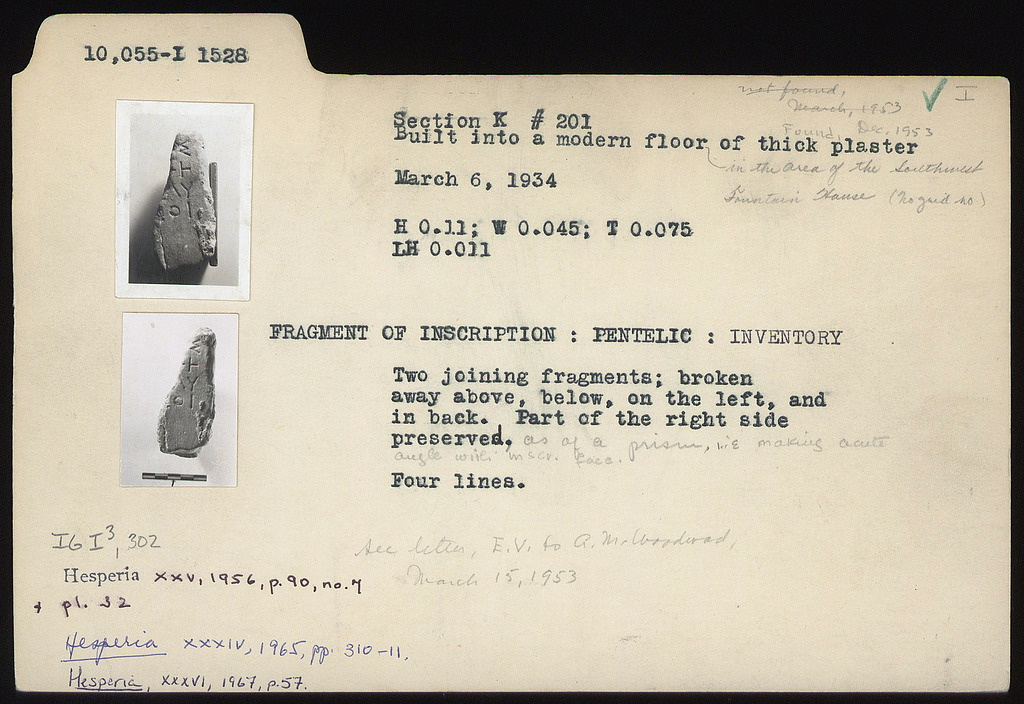 10,055-I 1528
not found,
March, 1953
Found, Dec. 1953
I
Section K # 201
Built into a modern floor of thick plaster
in the area of the Southwest
Fountain House (no grid no.)
March 6, 1934
H 0.11; W 0.045; T 0.075
LH 0.011
FRAGMENT OF INSCRIPTION : PENTELIC : INVENTORY
Two joining fragments; broken
away above, below, on the left, and
in back. Part of the right side
preserved, as of a prism, i.e. making acute
angle with inscr. face.
Four lines.
IG I³, 302
See letter, E.V. to A. M. Woodward,
March 15, 1953
Hesperia XXV, 1956, p. 90, no. 7
+ pl. 32
Hesperia XXXIV, 1965, pp. 310-11.
Hesperia, XXXVI, 1967, p. 57.